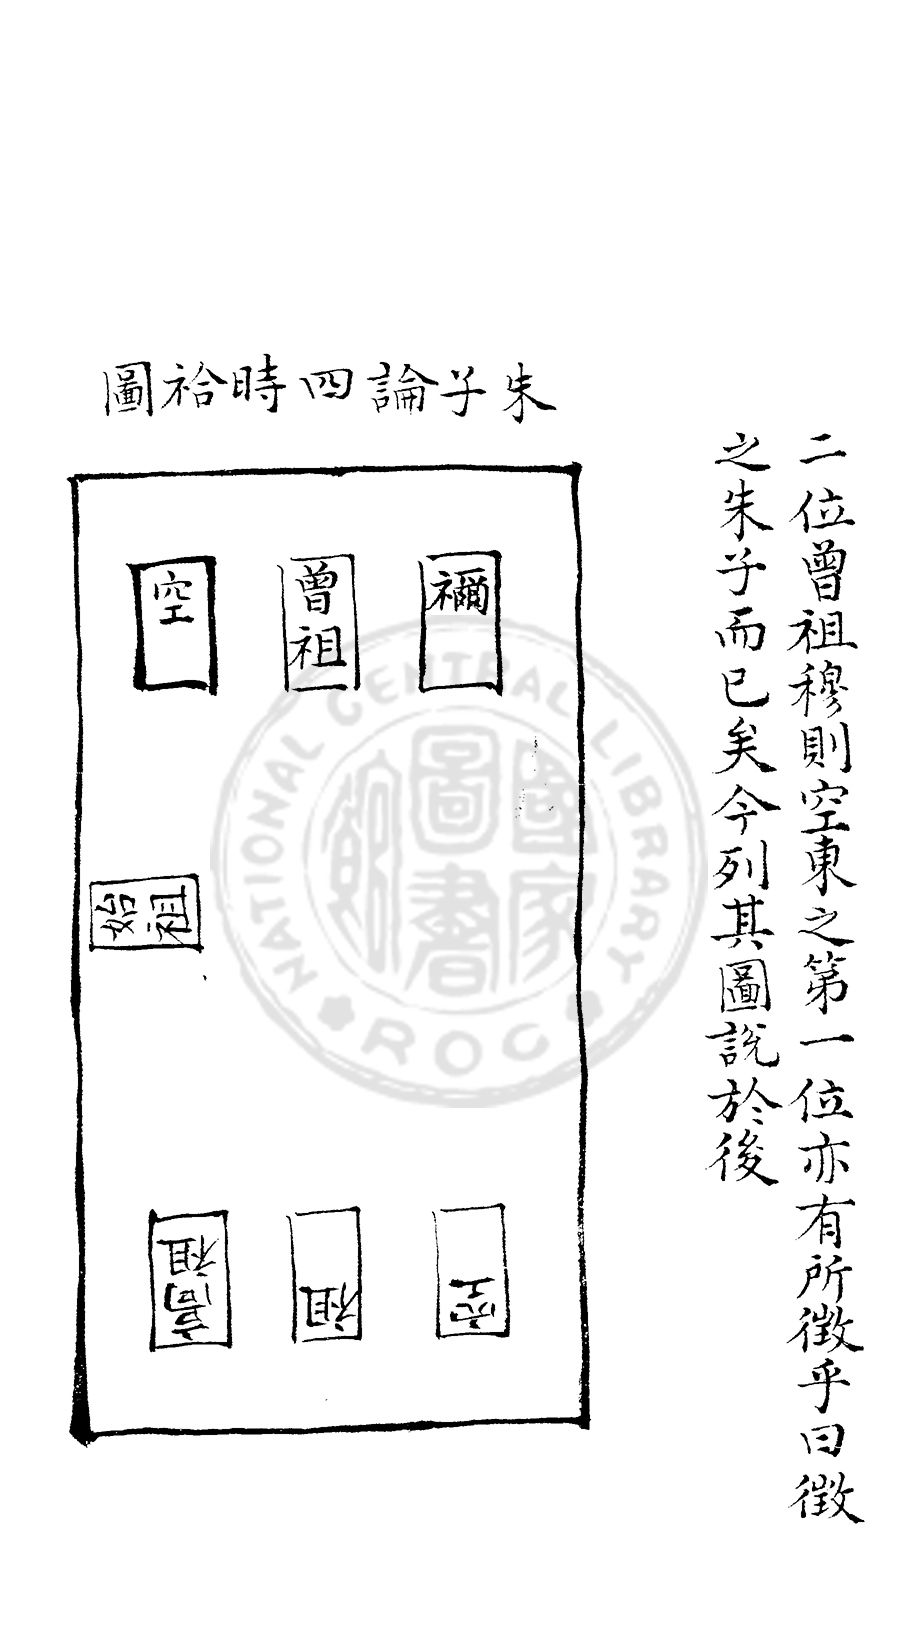 二位曾祖穆則空東之第一位亦有所徵乎曰徵
之朱子而已矣今列其圖說於後
朱子論四時祫圖
禰
曾祖
空
始祖
高祖
祖
空
NATIONAL CENTRAL LIBRARY
ROC
國家圖書館